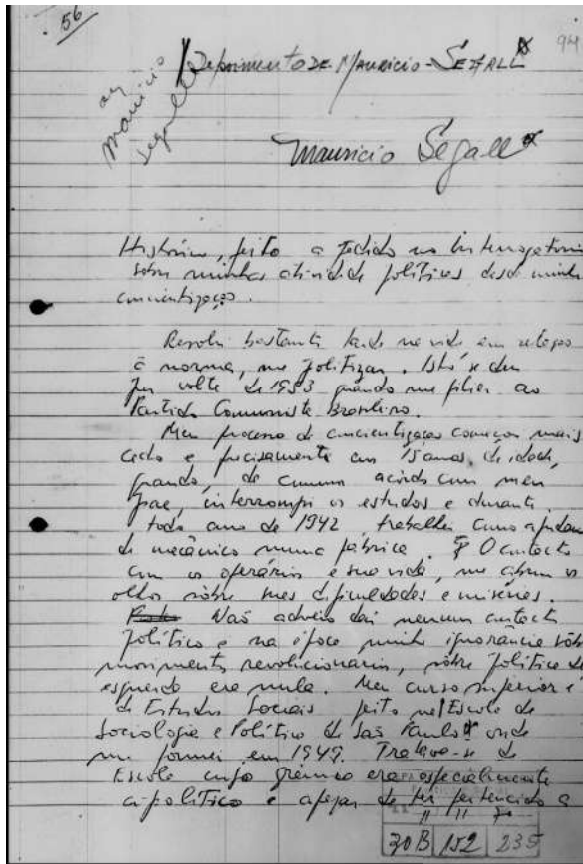 56
94
Depoimento DE Mauricio SEGALL
ass
Mauricio
Segall
Mauricio Segall
Histórico, feito a pedido no interrogatorio
sobre minhas atividade políticas desde minha
concientização.
Resolvi bastante tarde na vida em relação
à norma, me politizar. Isto se deu
por volta de 1953 quando me filiei ao
Partido Comunista Brasileiro.
Meu processo de concientização começou mais
cedo e precisamente em 15 anos de idade,
quando, de comum acordo com meu
pae, interrompi os estudos e durante
todo ano de 1942 trabalhei como ajudante
de mecânico numa fábrica. O contacto
com os operários e sua vida, me abriu os
olhos sôbre suas dificuldades e misérias.
Não adveio daí nenhum contacto
político e na época minha ignorância sôbre
movimento revolucionario, sôbre política de
esquerda era nula. Meu curso superior é
de Estudos Sociais feito na Escola de
Sociologia e Política de São Paulo onde
me formei em 1949. Tratava-se de
Escola cujo grêmio era especialmente
apolítico e apesar de ter pertencido a
30B 152 235